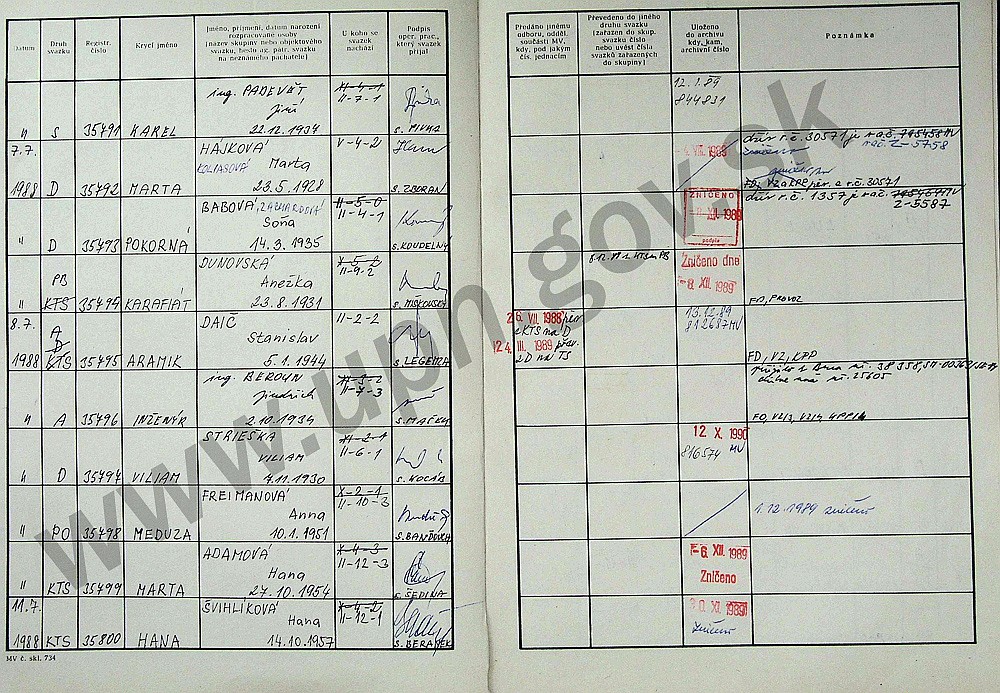 Datum
Druh svazku
Registr. číslo
Krycí jméno
Jméno, příjmení, datum narození
rozpracované osoby
[název skupiny nebo objektového
svazku, heslo ag. pátr. svazku
na neznámého pachatele]
U koho se
svazek
nachází
Podpis
oper. prac.,
který svazek
přijal
Předáno jinému
odboru, odděl.
součásti MV,
kdy, pod jakým
čís. jednacím
Převedeno do jiného
druhu svazku
[zařazen do skup.
svazku číslo
nebo uvést čísla
svazků zařazených
do skupiny]
Uloženo
do archivu
kdy, kam,
archivní číslo
Poznámka
ing. PADEVĚT
Jiří
22.12.1934
" S 35791 KAREL
X-4-1
II-7-1
S. PIVKA
12.1.89
844831
7.7.
1988 D 35792 MARTA
HÁJKOVÁ
KOLIASOVÁ Marta
23.5.1928
V-4-2
S. ZBORAN
VII. 1988
dův r.č. 30571 je v ač. 795458 MV
v ač. 2-5758
zničeno
30571
" D 35793 POKORNÁ
BABOVÁ, ZACHARDOVÁ
Soňa
14.3.1935
II-5-0
II-4-1
S. KOUDELNÝ
ZNIČENO
XII. 1988
podpis
dův r.č. 1357 je v ač.
2-5587
PB
" KTS 35794 KARAFIÁT
DUNOVSKÁ
Anežka
23.8.1931
X-5-2
II-9-2
S. MISKOVSKÁ
Zničeno dne
-8. XII. 1989
FD, PROVOZ
8.7.
A
D
1988 KTS 35795 ARAMIK
DAIČ
Stanislav
5.1.1944
II-2-2
S. LEGEMZA
26. VII. 1988 přev.
z KTS na D
124. III. 1989 přev.
z D na TS
13.12.89
812687 MV
FD, VZ, KPP
" A 35796 INŽENÝR
ing. BEROUN
Jindřich
2.10.1934
X-3-2
II-7-3
S. MAREK
č. 25605
" D 35797 VILIAM
STRIEŠKA
VILIAM
4.11.1930
XI-2-1
II-6-1
S. KOCÁB
12. X. 1990
816574 MV
" PO 35798 MEDUZA
FREIMANOVÁ
Anna
10.1.1951
X-2-1
II-10-3
1.12.1989 zničeno
" KTS 35799 MARTA
ADAMOVÁ
Hana
27.10.1954
X-4-3
II-12-3
S. ŠEDINA
-6. XII. 1989
Zničeno
11.7.
1988 KTS 35800 HANA
ŠVIHLÍKOVÁ
Hana
14.10.1957
X-4-2
II-12-1
S. BERÁNEK
30. XI. 1989
zničeno
MV č. skl. 734
www.upn.gov.sk